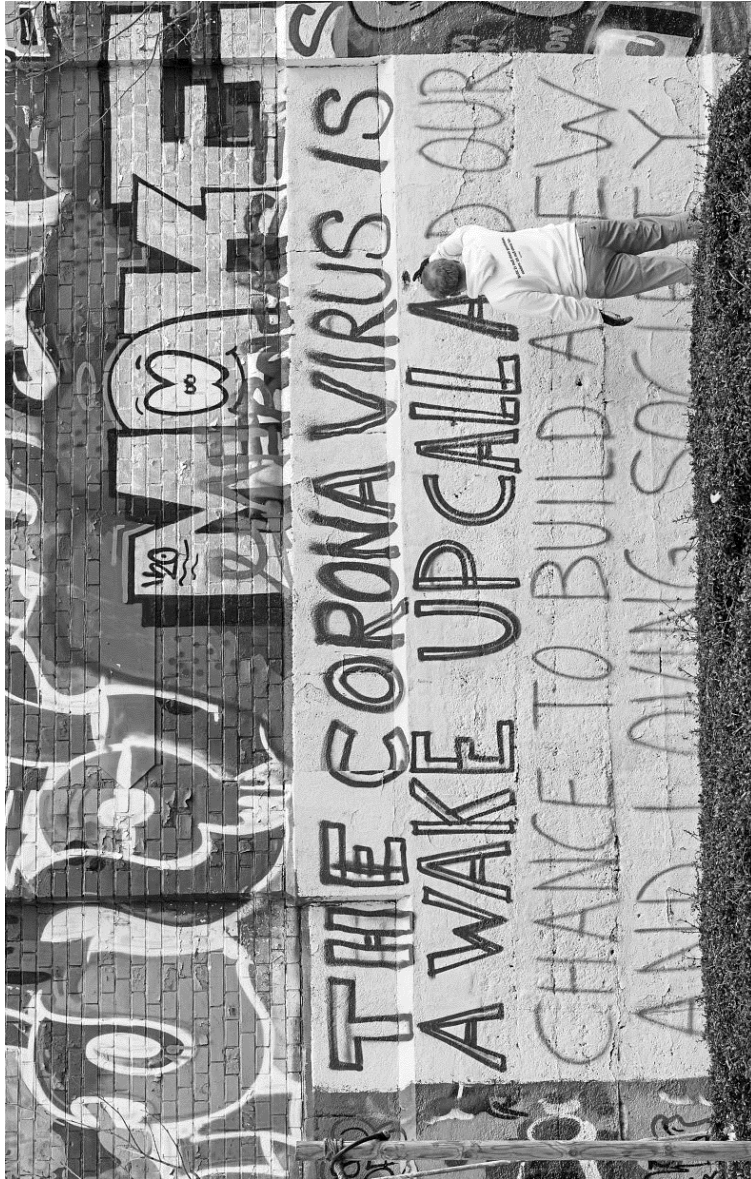 MOKE
'20
THE CORONA VIRUS IS
A WAKE UP CALL AND OUR
CHANCE TO BUILD A NEW
AND LOVING SOCIETY